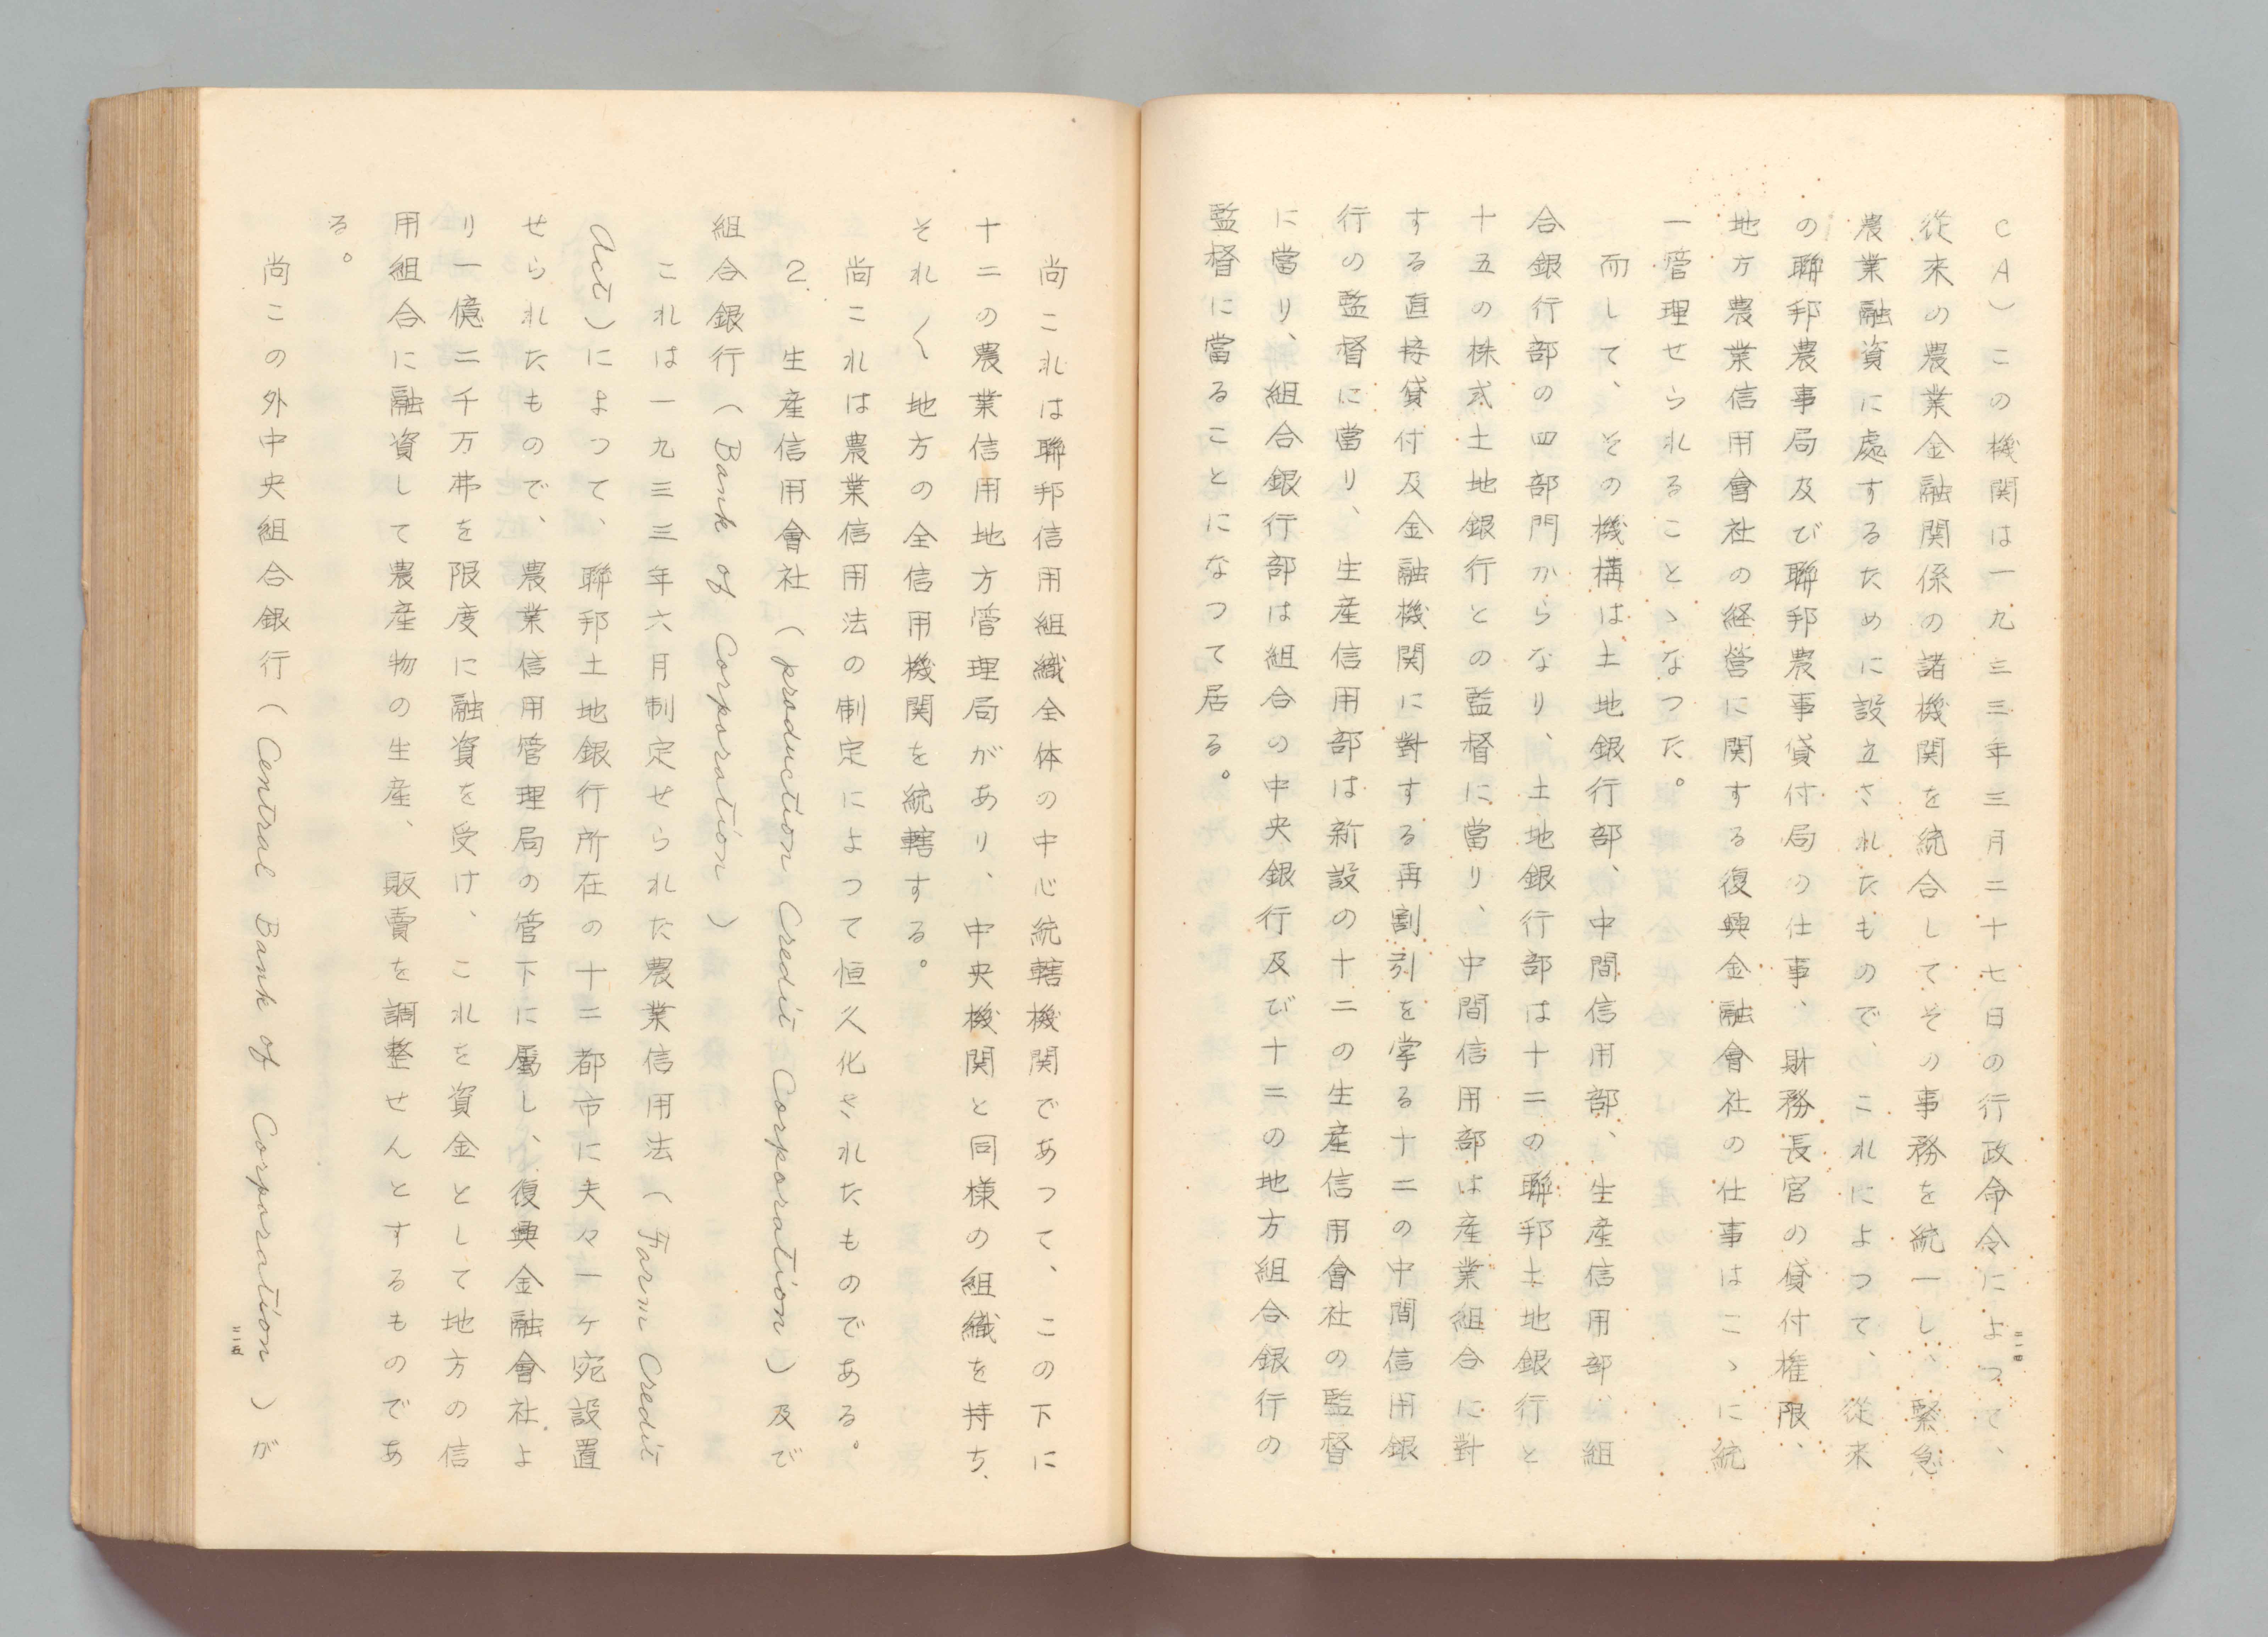 CA）この機関は一九三三年三月二十七日の行政命令によつて、
従来の農業金融関係の諸機関を統合してその事務を統一し、緊急
農業融資に處するために設立されたもので、これによつて、従来
の聯邦農事局及び聯邦農事貸付局の仕事、財務長官の貸付権限、
地方農業信用會社の経營に関する復興金融會社の仕事はこゝに統
一管理せられることゝなつた。
而して、その機構は土地銀行部、中間信用部、生産信用部、組
合銀行部の四部門からなり、土地銀行部は十二の聯邦土地銀行と
十五の株式土地銀行との監督に當り、中間信用部は産業組合に對
する直接貸付及金融機関に對する再割引を掌る十二の中間信用銀
行の監督に當り、生産信用部は新設の十二の生産信用會社の監督
に當り、組合銀行部は組合の中央銀行及び十二の地方組合銀行の
監督に當ることになつて居る。
二一四
尚これは聯邦信用組織全体の中心統轄機関であつて、この下に
十二の農業信用地方管理局があり、中央機関と同様の組織を持ち、
それ〱地方の全信用機関を統轄する。
尚これは農業信用法の制定によつて恒久化されたものである。
2. 生産信用會社（production Credit Corporation）及び
組合銀行（Bank of Corporation）
これは一九三三年六月制定せられた農業信用法（Farm Credit
Act）によつて、聯邦土地銀行所在の十二都市に夫々一ヶ宛設置
せられたもので、農業信用管理局の管下に屬し、復興金融會社よ
り一億二千万弗を限度に融資を受け、これを資金として地方の信
用組合に融資して農産物の生産、販賣を調整せんとするものであ
る。
尚この外中央組合銀行（Central Bank of Corporation）が
二一五